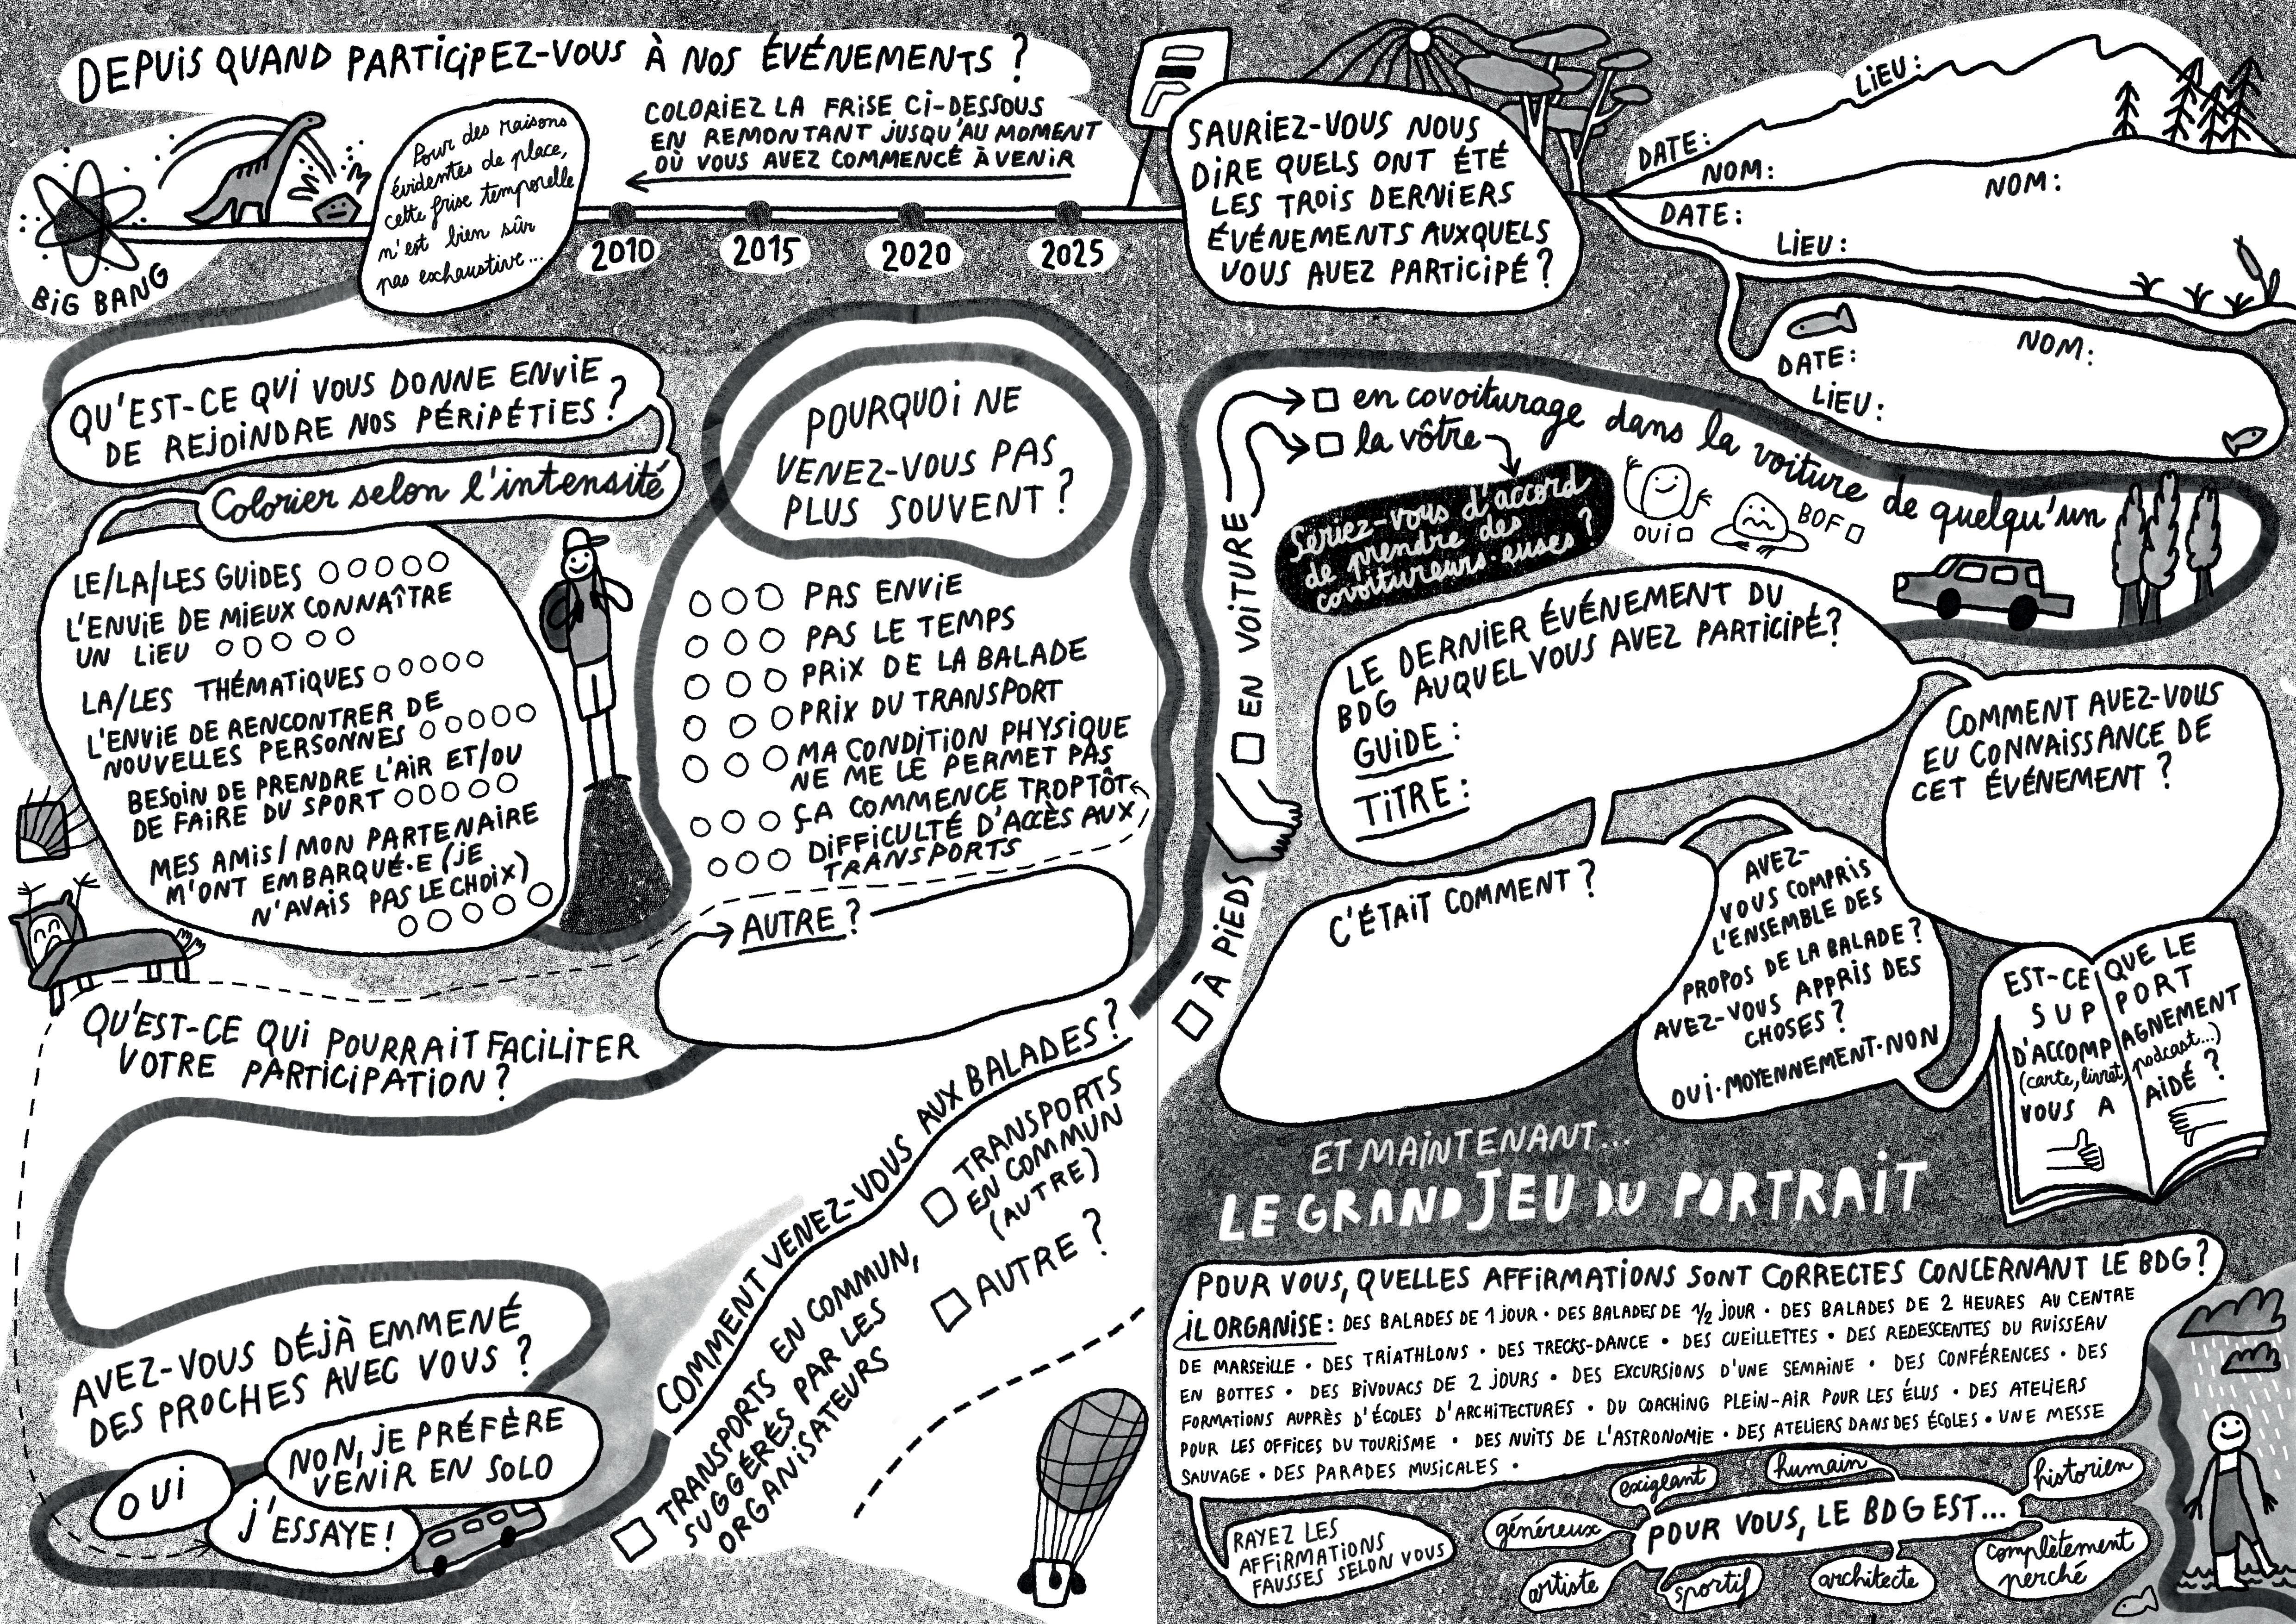 DEPUIS QUAND PARTICIPEZ-VOUS À NOS ÉVÉNEMENTS ?
COLORIEZ LA FRISE CI-DESSOUS
EN REMONTANT JUSQU'AU MOMENT
OÙ VOUS AVEZ COMMENCÉ À VENIR
Pour des raisons
évidentes de place,
cette frise temporelle
n'est bien sûr
pas exhaustive...
BIG BANG
2010
2015
2020
2025
SAURIEZ-VOUS NOUS
DIRE QUELS ONT ÉTÉ
LES TROIS DERNIERS
ÉVÉNEMENTS AUXQUELS
VOUS AVEZ PARTICIPÉ ?
LIEU :
DATE :
NOM :
NOM :
DATE :
LIEU :
NOM :
DATE :
LIEU :
QU'EST-CE QUI VOUS DONNE ENVIE
DE REJOINDRE NOS PÉRIPÉTIES ?
Colorier selon l'intensité
LE/LA/LES GUIDES
L'ENVIE DE MIEUX CONNAÎTRE
UN LIEU
LA/LES THÉMATIQUES
L'ENVIE DE RENCONTRER DE
NOUVELLES PERSONNES
BESOIN DE PRENDRE L'AIR ET/OU
DE FAIRE DU SPORT
MES AMIS/MON PARTENAIRE
M'ONT EMBARQUÉ·E (JE
N'AVAIS PAS LE CHOIX)
POURQUOI NE
VENEZ-VOUS PAS
PLUS SOUVENT ?
PAS ENVIE
PAS LE TEMPS
PRIX DE LA BALADE
PRIX DU TRANSPORT
MA CONDITION PHYSIQUE
NE ME LE PERMET PAS
ÇA COMMENCE TROP TÔT
DIFFICULTÉ D'ACCÈS AUX
TRANSPORTS
AUTRE ?
QU'EST-CE QUI POURRAIT FACILITER
VOTRE PARTICIPATION ?
AVEZ-VOUS DÉJÀ EMMENÉ
DES PROCHES AVEC VOUS ?
OUI
NON, JE PRÉFÈRE
VENIR EN SOLO
J'ESSAYE !
COMMENT VENEZ-VOUS AUX BALADES ?
TRANSPORTS EN COMMUN,
SUGGÉRÉS PAR LES
ORGANISATEURS
TRANSPORTS
EN COMMUN
(AUTRE)
AUTRE ?
À PIEDS
EN VOITURE
en covoiturage dans la voiture de quelqu'un
la vôtre
Seriez-vous d'accord
de prendre des
covoitureurs·euses ?
OUI
BOF
LE DERNIER ÉVÉNEMENT DU
BDG AUQUEL VOUS AVEZ PARTICIPÉ ?
GUIDE :
TITRE :
COMMENT AVEZ-VOUS
EU CONNAISSANCE DE
CET ÉVÉNEMENT ?
C'ÉTAIT COMMENT ?
AVEZ-
VOUS COMPRIS
L'ENSEMBLE DES
PROPOS DE LA BALADE ?
AVEZ-VOUS APPRIS DES
CHOSES ?
OUI·MOYENNEMENT·NON
EST-CE QUE LE
SUPPORT
D'ACCOMPAGNEMENT
(carte, livret, podcast...)
VOUS A AIDÉ ?
ET MAINTENANT...
LE GRAND JEU DU PORTRAIT
POUR VOUS, QUELLES AFFIRMATIONS SONT CORRECTES CONCERNANT LE BDG ?
IL ORGANISE : DES BALADES DE 1 JOUR • DES BALADES DE ½ JOUR • DES BALADES DE 2 HEURES AU CENTRE
DE MARSEILLE • DES TRIATHLONS • DES TRECKS-DANCE • DES CUEILLETTES • DES REDESCENTES DU RUISSEAU
EN BOTTES • DES BIVOUACS DE 2 JOURS • DES EXCURSIONS D'UNE SEMAINE • DES CONFÉRENCES • DES
FORMATIONS AUPRÈS D'ÉCOLES D'ARCHITECTURES • DU COACHING PLEIN-AIR POUR LES ÉLUS • DES ATELIERS
POUR LES OFFICES DU TOURISME • DES NUITS DE L'ASTRONOMIE • DES ATELIERS DANS DES ÉCOLES • UNE MESSE
SAUVAGE • DES PARADES MUSICALES •
RAYEZ LES
AFFIRMATIONS
FAUSSES SELON VOUS
POUR VOUS, LE BDG EST...
exigeant
humain
historien
généreux
artiste
sportif
architecte
complètement
perché